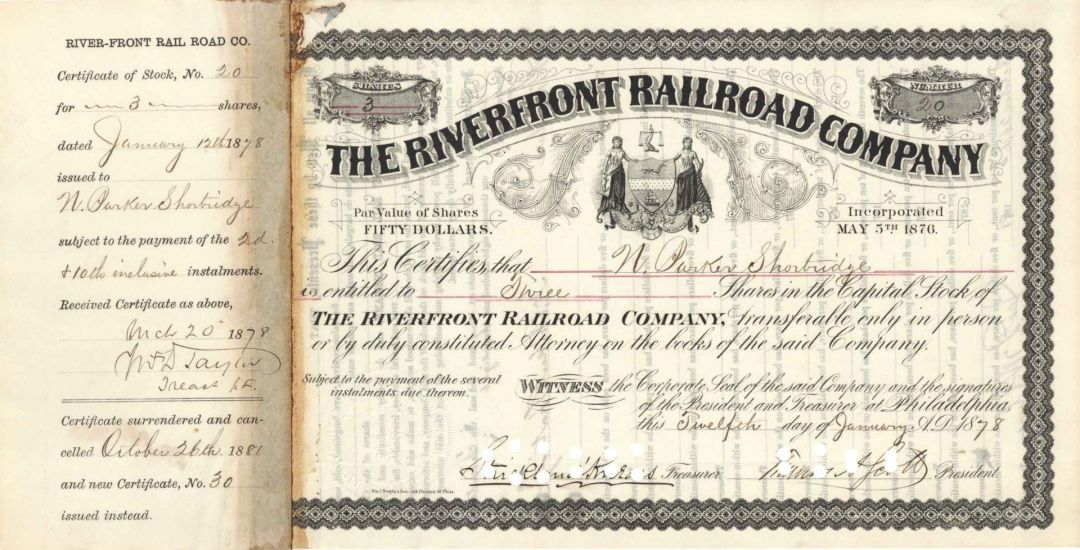 RIVER-FRONT RAIL ROAD CO.
Certificate of Stock, No. 20
for 3 shares,
dated January 12th 1878
issued to
N. Parker Shortridge
subject to the payment of the 2d.
& 10th inclusive instalments.
Received Certificate as above,
Mch 20 1878
Wm D Taylor
Treas
Certificate surrendered and can-
celled October 26th 1881
and new Certificate, No. 30
issued instead.
SHARES
3
NUMBER
20
THE RIVERFRONT RAILROAD COMPANY
Par Value of Shares
FIFTY DOLLARS.
Incorporated
MAY 5TH 1876.
This Certifies, that N. Parker Shortridge
is entitled to Three Shares in the Capital Stock of
THE RIVERFRONT RAILROAD COMPANY, transferable only in person
or by duly constituted Attorney on the books of the said Company.
Subject to the payment of the several
instalments due thereon.
WITNESS the Corporate Seal of the said Company and the signatures
of the President and Treasurer at Philadelphia,
this Twelfth day of January A.D. 1878
Treasurer
Thomas A Scott President.